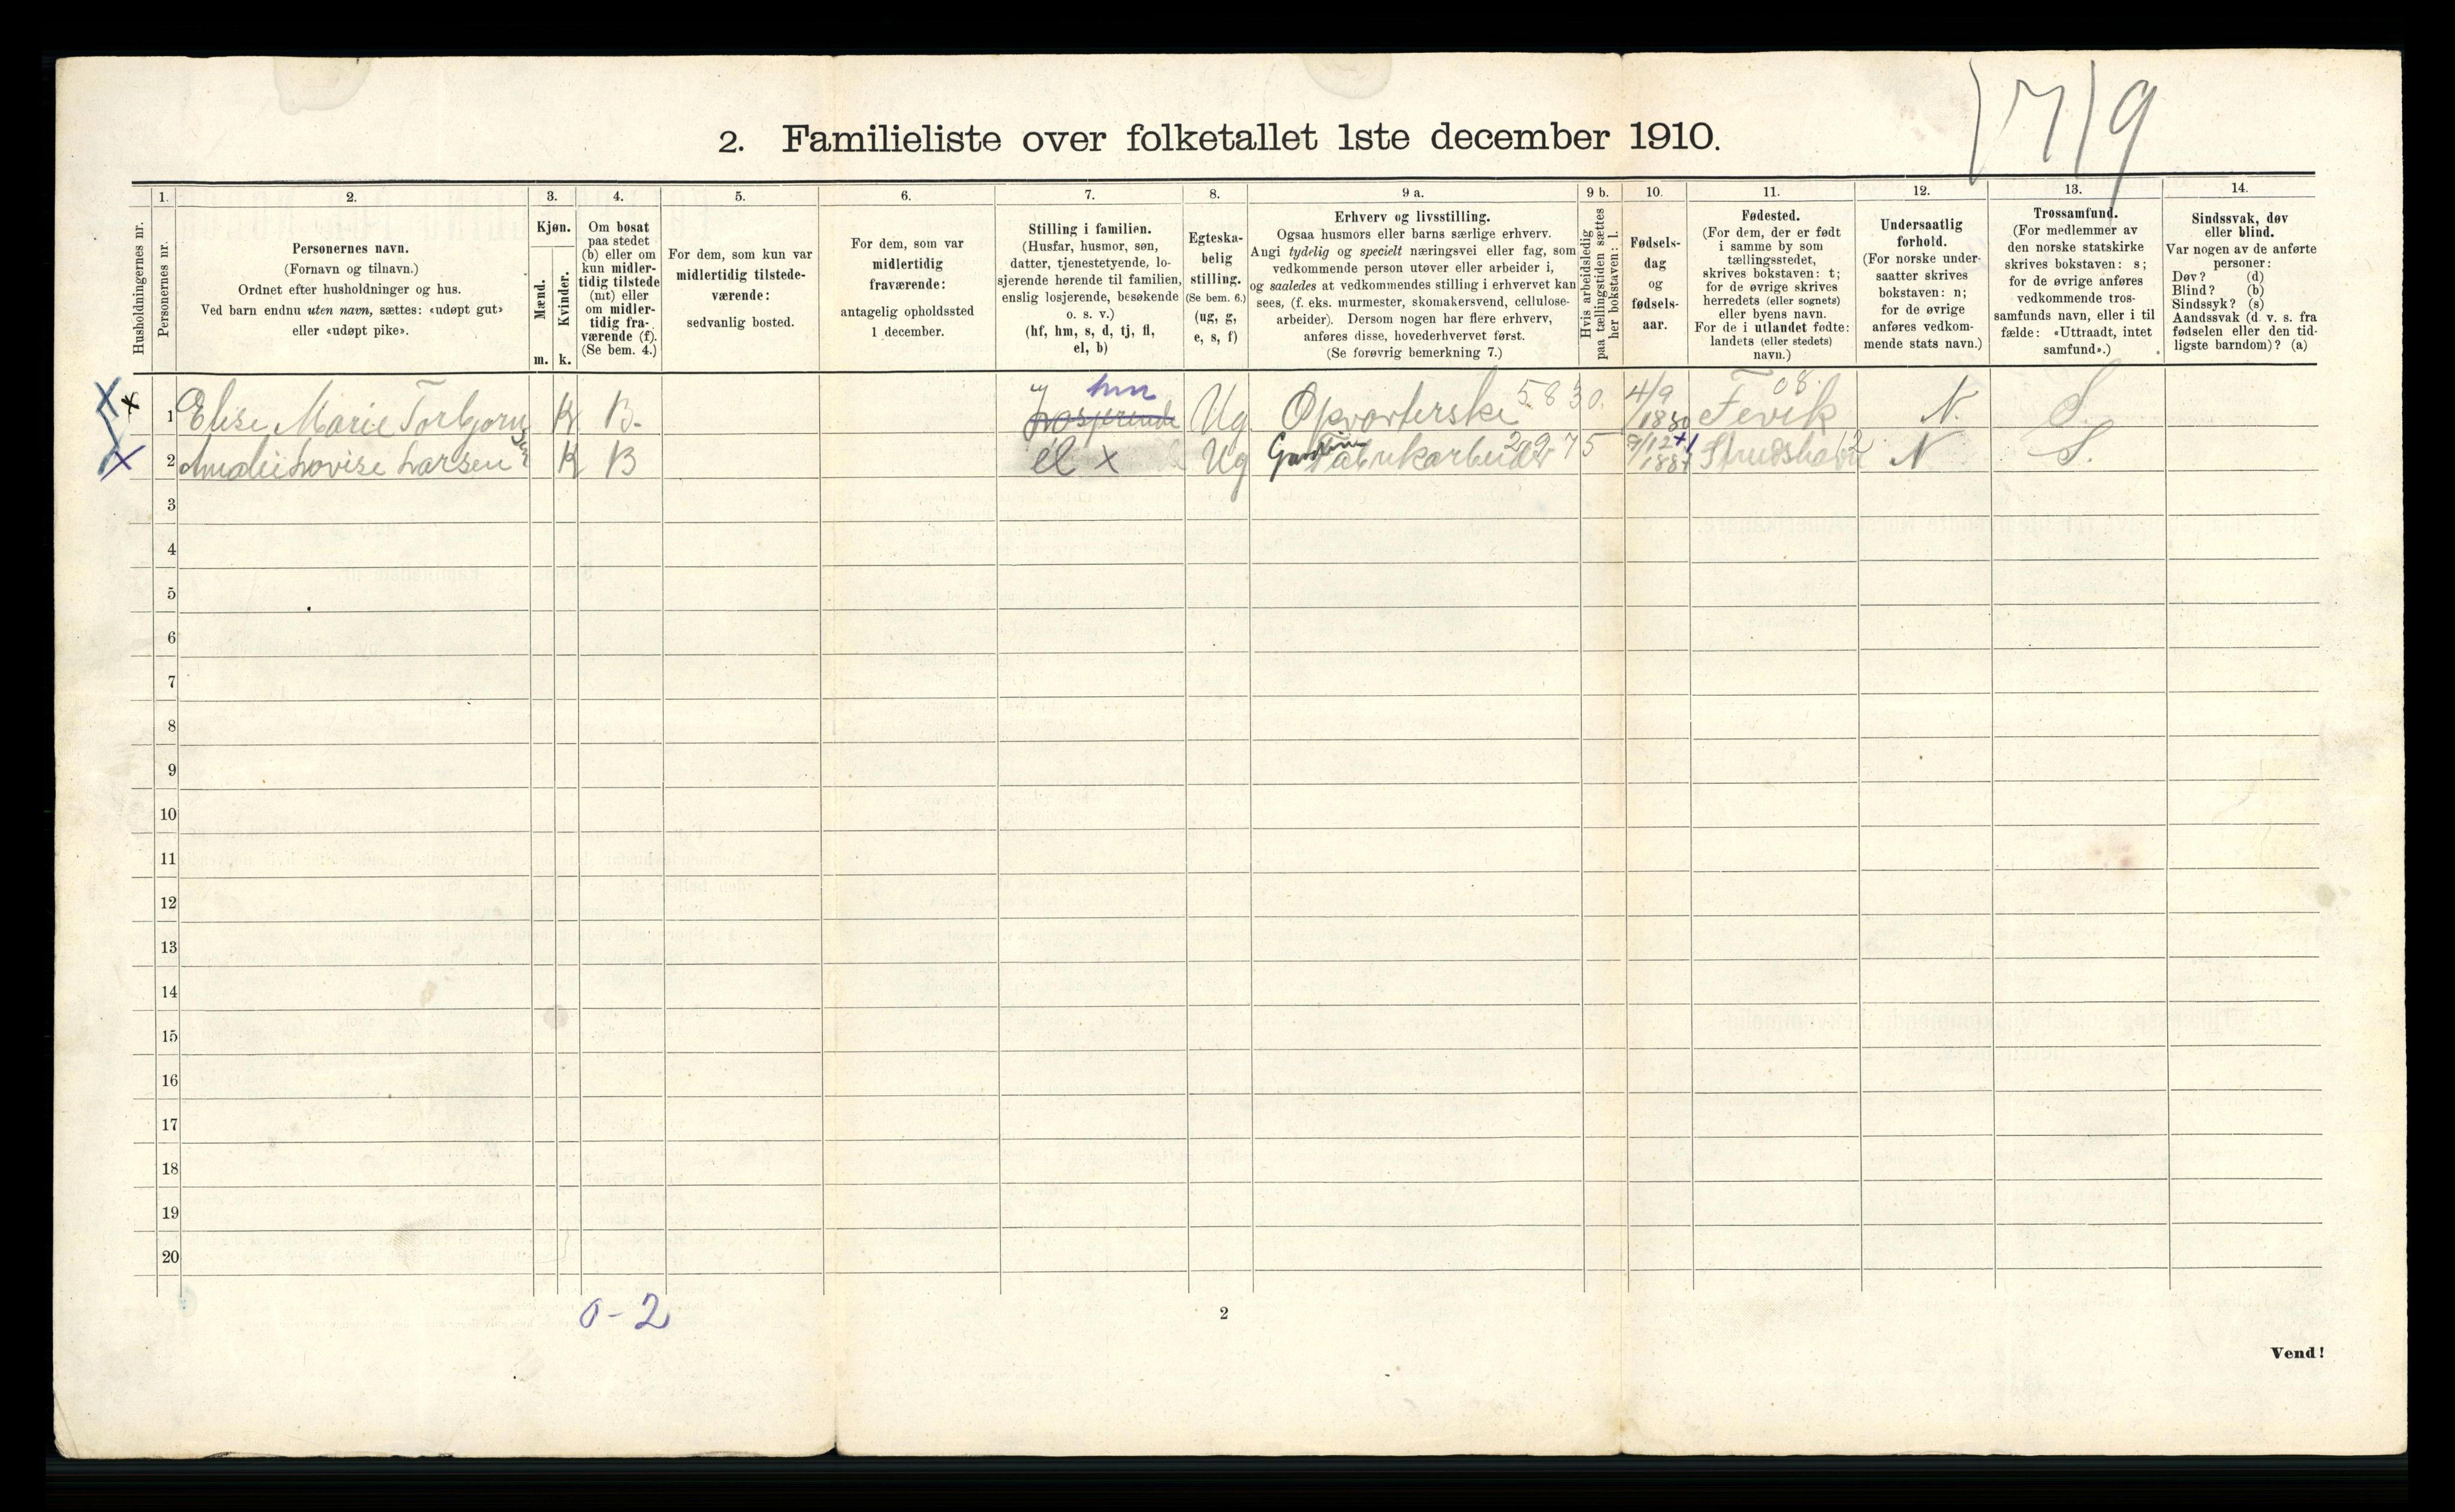 7/9
2. Familieliste over folketallet 1ste december 1910.
Husholdningernes nr.
1.
Personernes nr.
2.
Personernes navn.
(Fornavn og tilnavn.)
Ordnet efter husholdninger og hus.
Ved barn endnu uten navn, sættes: «udøpt gut»
eller «udøpt pike».
3.
Kjøn.
Mænd.
Kvinder.
m. k.
4.
Om bosat
paa stedet
(b) eller om
kun midler-
tidig tilstede
(mt) eller
om midler-
tidig fra-
værende (f).
(Se bem. 4.)
5.
For dem, som kun var
midlertidig tilstede-
værende:
sedvanlig bosted.
6.
For dem, som var
midlertidig
fraværende:
antagelig opholdssted
1 december.
7.
Stilling i familien.
(Husfar, husmor, søn,
datter, tjenestetyende, lo-
sjerende hørende til familien,
enslig losjerende, besøkende
o. s. v.)
(hf, hm, s, d, tj, fl,
el, b)
8.
Egteska-
belig
stilling.
(Se bem. 6.)
(ug, g,
e, s, f)
9 a.
Erhverv og livsstilling.
Ogsaa husmors eller barns særlige erhverv.
Angi tydelig og specielt næringsvei eller fag, som
vedkommende person utøver eller arbeider i,
og saaledes at vedkommendes stilling i erhvervet kan
sees, (f. eks. murmester, skomakersvend, cellulose-
arbeider). Dersom nogen har flere erhverv,
anføres disse, hovederhvervet først.
(Se forøvrig bemerkning 7.)
9 b.
Hvis arbeidsledig
paa tællingstiden sættes
her bokstaven: l.
10.
Fødsels-
dag
og
fødsels-
aar.
11.
Fødested.
(For dem, der er født
i samme by som
tællingsstedet,
skrives bokstaven: t;
for de øvrige skrives
herredets (eller sognets)
eller byens navn.
For de i utlandet fødte:
landets (eller stedets)
navn.)
12.
Undersaatlig
forhold.
(For norske under-
saatter skrives
bokstaven: n;
for de øvrige
anføres vedkom-
mende stats navn.)
13.
Trossamfund.
(For medlemmer av
den norske statskirke
skrives bokstaven: s;
for de øvrige anføres
vedkommende tros-
samfunds navn, eller i til
fælde: «Uttraadt, intet
samfund».)
14.
Sindssvak, døv
eller blind.
Var nogen av de anførte
personer:
Døv? (d)
Blind? (b)
Sindssyk? (s)
Aandssvak (d. v. s. fra
fødselen eller den tid-
ligste barndom)? (a)
x x 1 Elise Marie Torbjørnsen K B. hm Losjerende Ug Opvarterske 5830. 4/9 1880 Fevik 08. N. S.
x 2 Amalie Lovise Larsen K B el x Ug Gardin Fabrikarbeider 2975 9/12 +1 N S.
3
4
5
6
7
8
9
10
11
12
13
14
15
16
17
18
19
20
0-2
2
Vend!